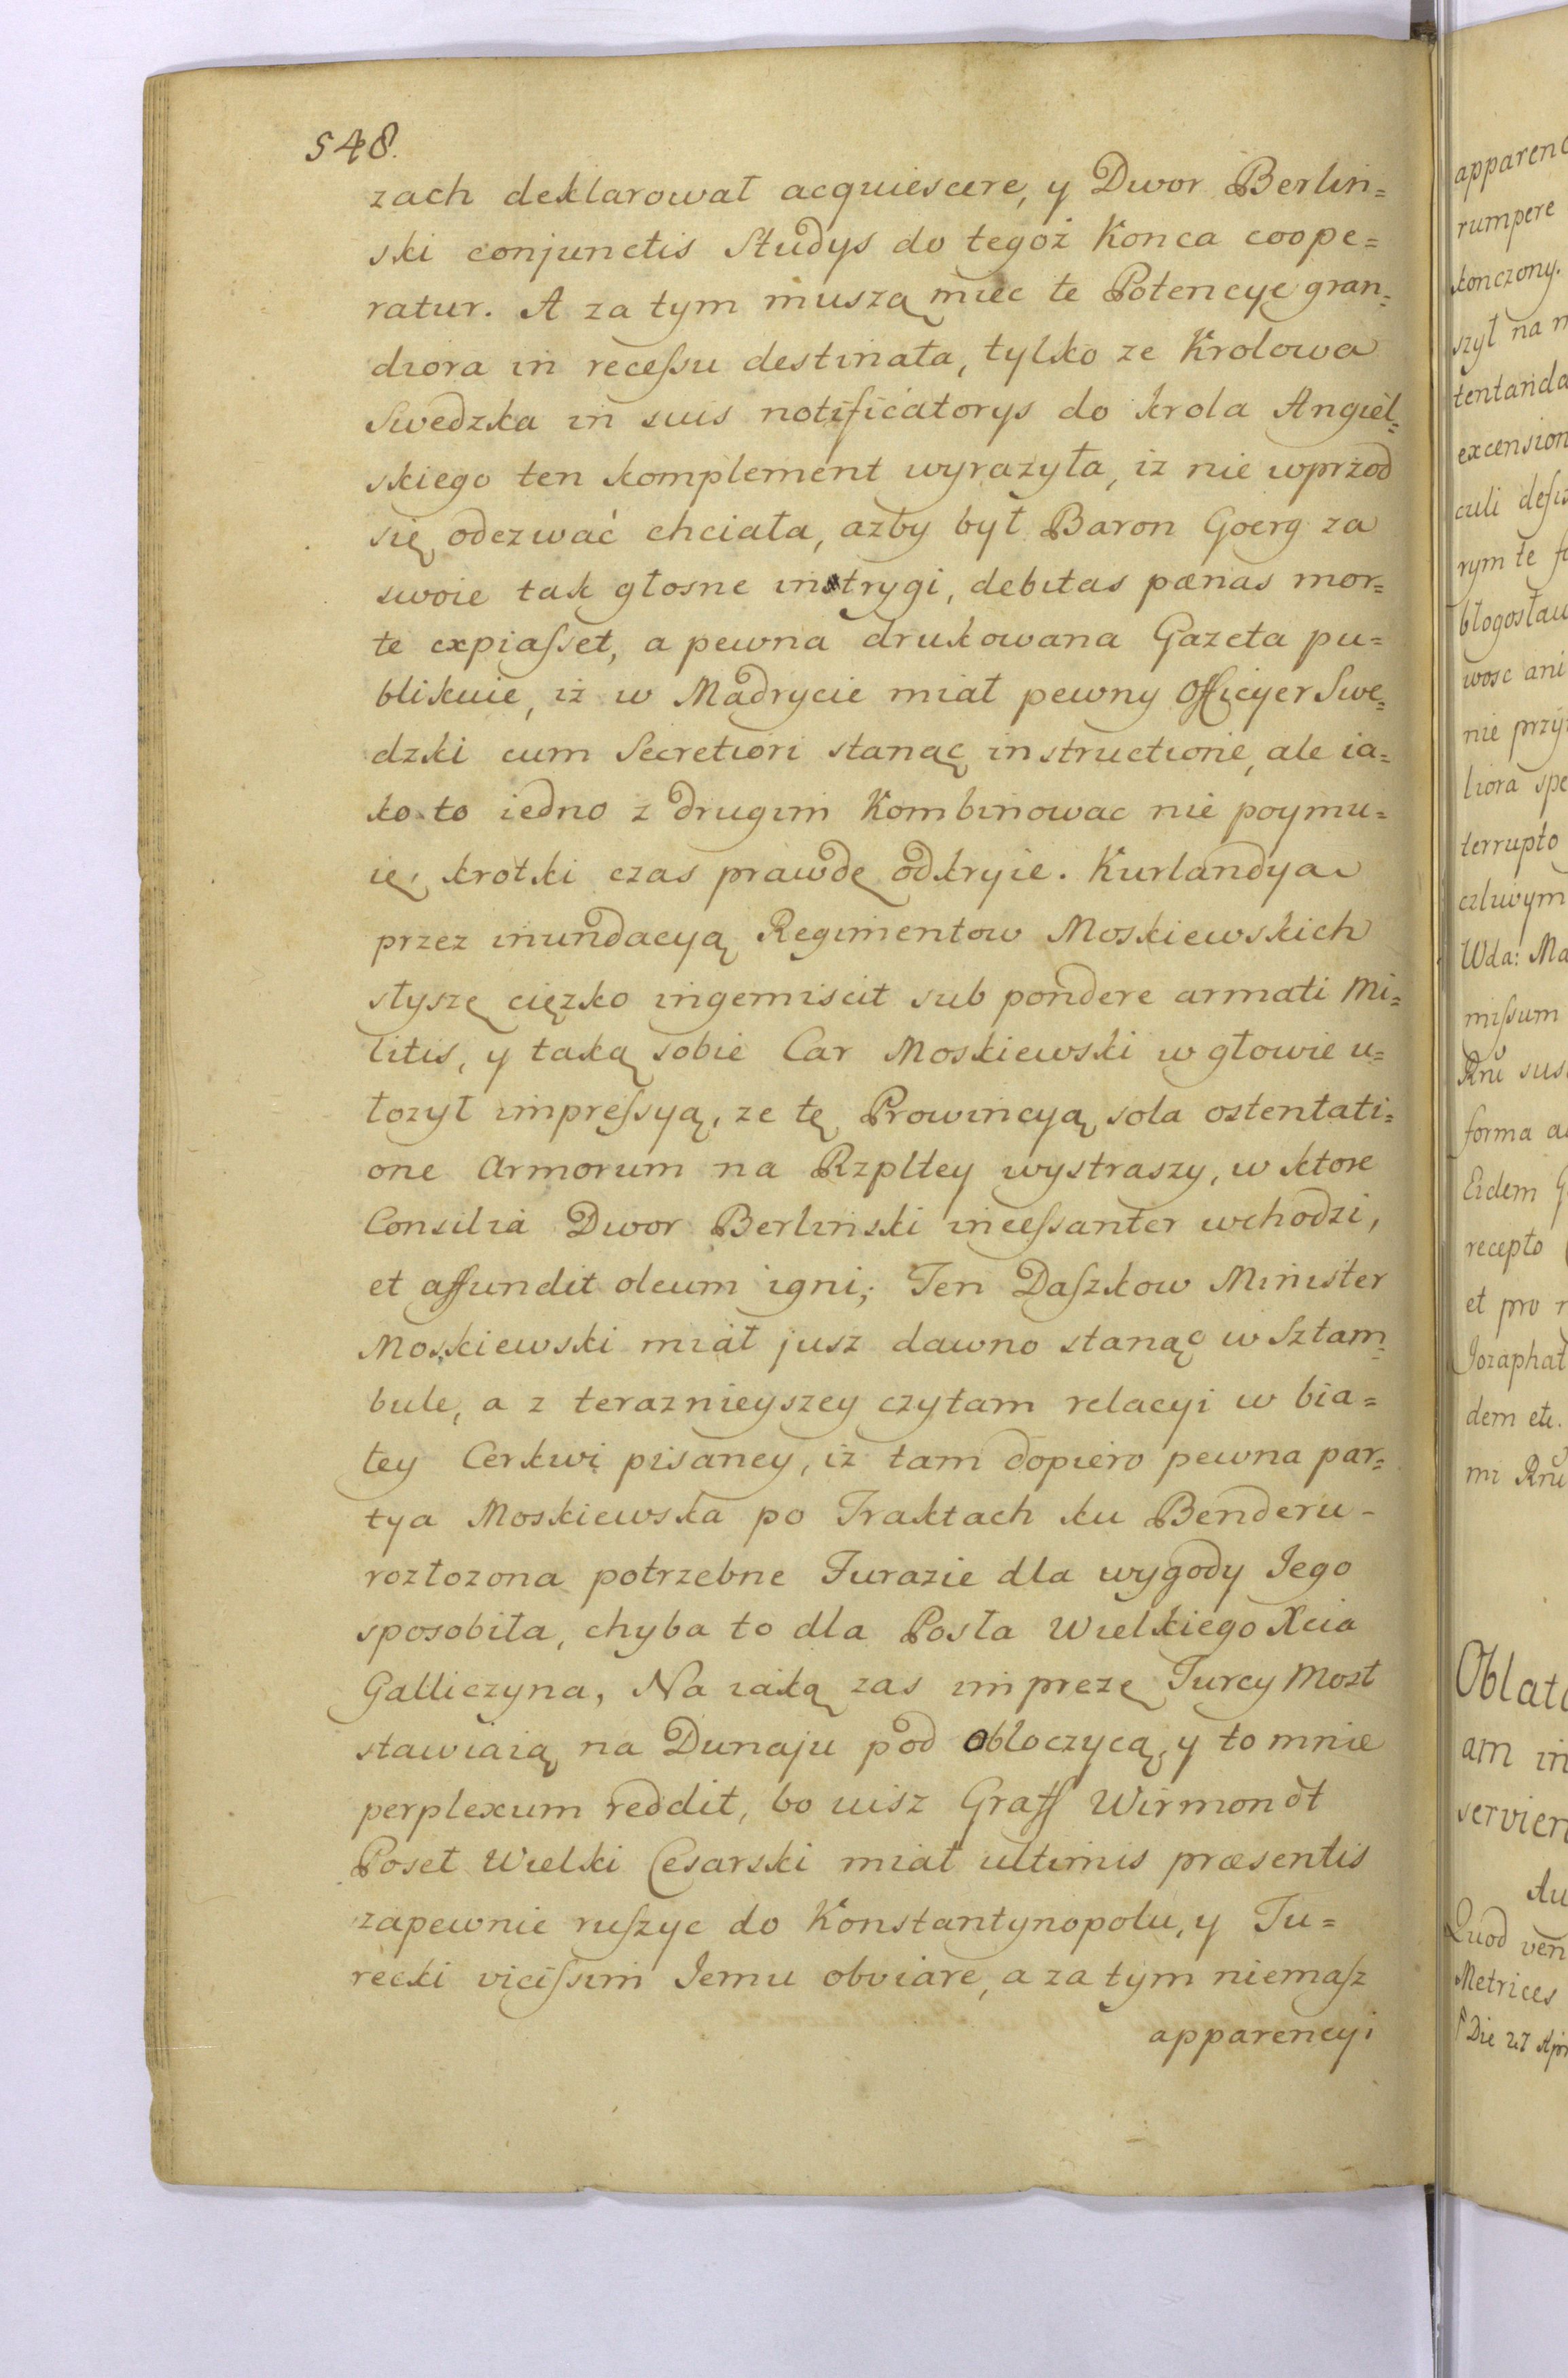 548.
zach deklarował acquiescere, y Dwor Berlin=
ski conjunctis Studys do tegoż Konca coope=
ratur. A za tym muszą miec te Potencye gran=
diora in recessu destinata, tylko ze Krolowa
Swedzka in suis notificatorys do krola Angiel=
skiego ten komplement wyrazyła, iz nie wprzod
się odezwać chciała, azby był Baron Goerg za
swoie tak głosne intrygi, debitas pœnas mor=
te expiasset, a pewna drukowana Gazeta pu=
blikuie, iż w Madrycie miał pewny Officyer Swe=
dzki cum Secretiori stanąc instructione, ale ia=
ko to iedno z drugim Kombinowac nie poymu=
ię, krotki czas prawdę odkryie. Kurlandya
przez inundacyą Regimentow Moskiewskich
słyszę cięzko ingemiscit sub pondere armati Mi=
litis, y taką sobie Car Moskiewski w głowie u=
łozył impressyą, ze tę Prowincyą sola ostentati=
one Armorum na Rzpltey wystraszy, w ktore
Consilia Dwor Berlinski incessanter wchodzi,
et affundit oleum igni; Ten Daszkow Minister
Moskiewski miał jusz dawno stanąc w Sztam=
bule, a z teraznieyszey czytam relacyi w bia=
łey Cerkwi pisaney, iz tam dopiero pewna par=
tya Moskiewska po Traktach ku Benderu-
rozłozona potrzebne Furazie dla wygody Jego
sposobiła, chyba to dla Posła Wielkiego Xcia
Galliczyna, Na iaką zas imprezę Turcy Most
stawiaią na Dunaju pod Obłoczycą, y to mnie
perplexum reddit, bo uisz Graff Wirmondt
Poseł Wielki Cesarski miał ultimis præsentis
zapewnie ruszyc do Konstantynopolu, y Tu=
recki vicissim Jemu obviare, a za tym niemasz
apparencyi
rumpere
konczony.
szył na
tentanda
culi
rym te
wosc ani
nie
liora
terrupto
Wda:
missum
forma
Eidem
recepto
et pro
dem etc.
mi
am
Quod
Metrices
Die 27